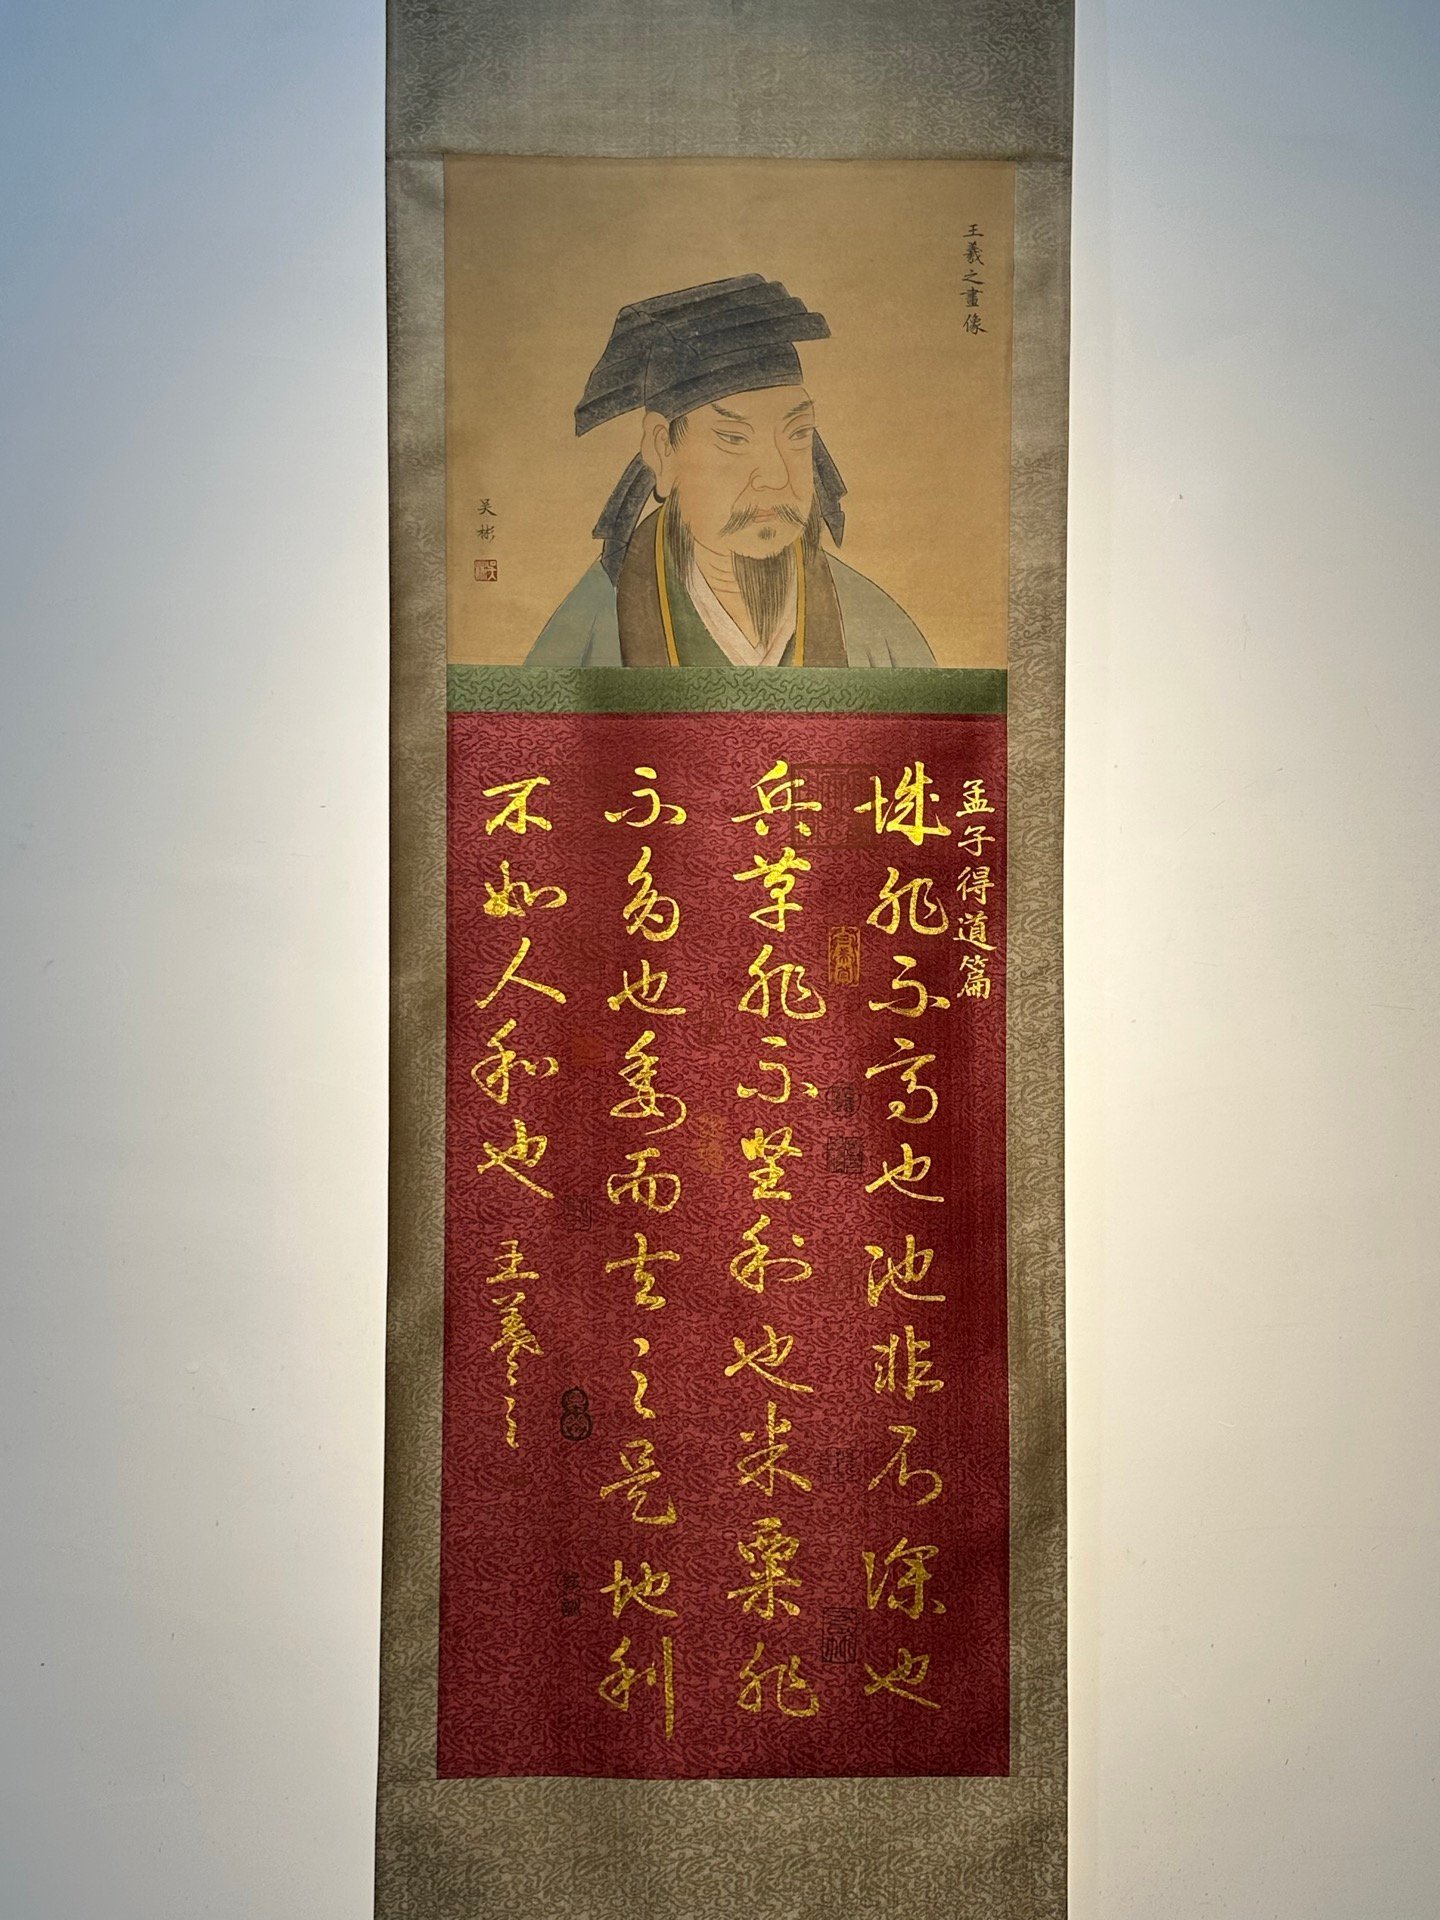 王羲之畫像
吳彬
孟子得道篇
城非不高也池非不深也
兵革非不堅利也米粟非
不多也委而去之是地利
不如人和也
王羲之